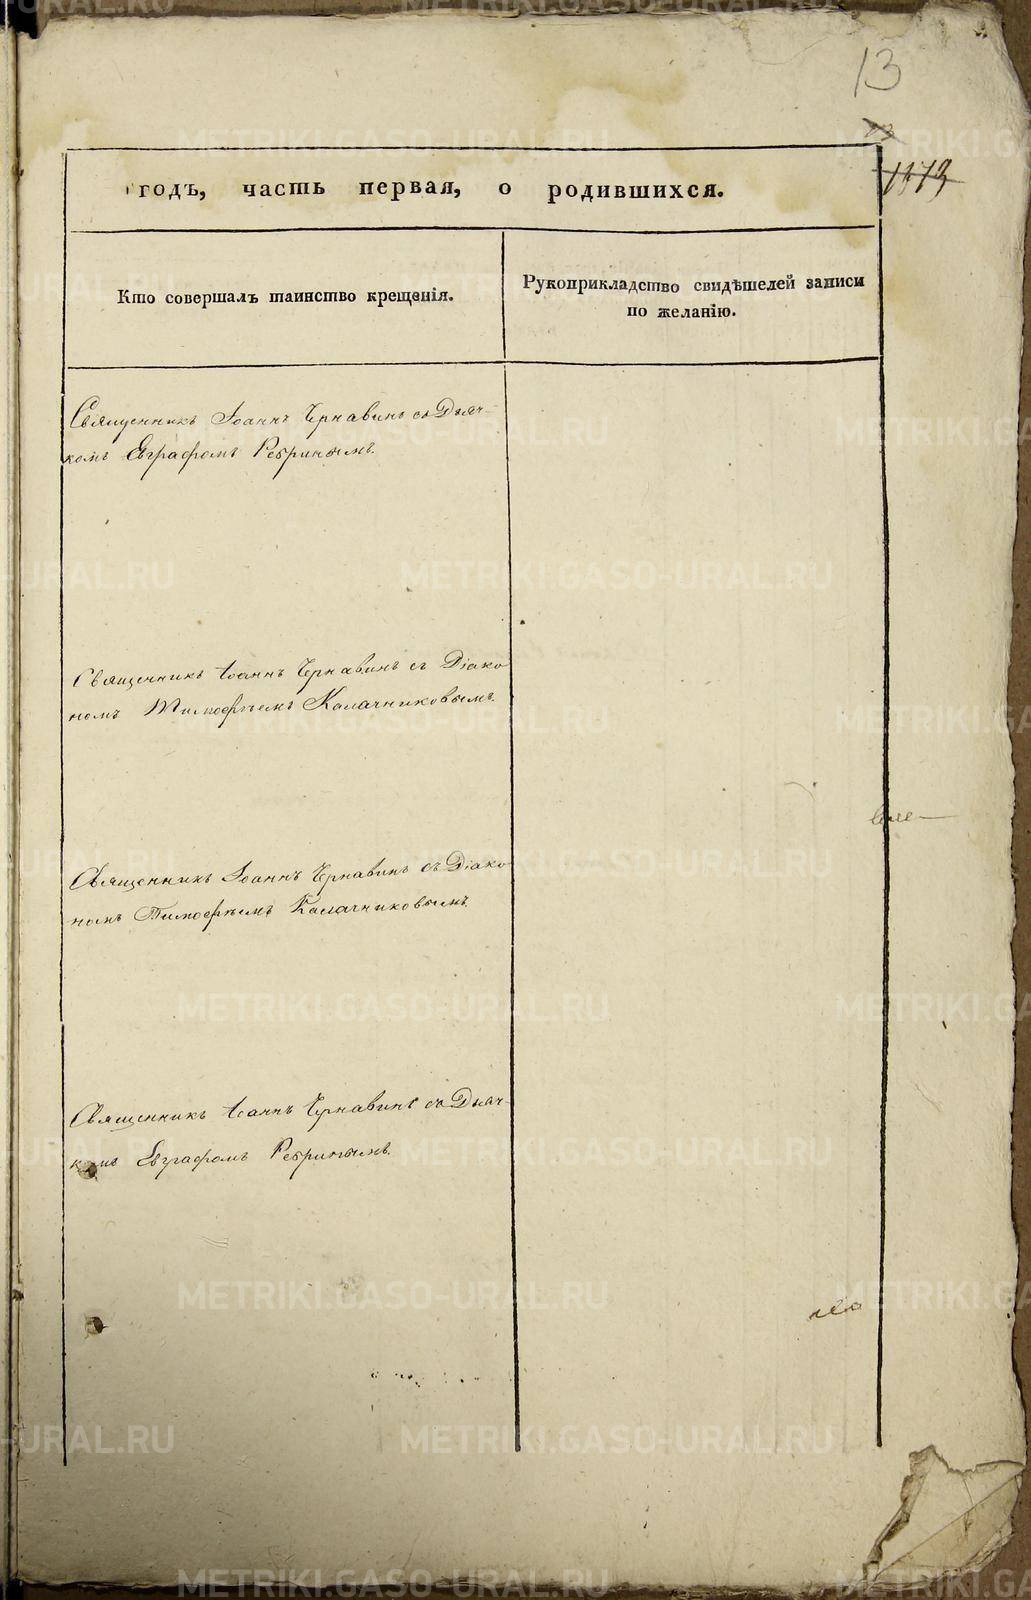 13
1373
годъ, часть первая, о родившихся.
Кто совершалъ таинство крещенія.
Рукоприкладство свидѣтелей записи
по желанію.
Священникъ Іоаннъ Чернавинъ съ Дьяч-
комъ Евграфомъ Ребринымъ.
Священникъ Іоаннъ Чернавинъ съ Діако
номъ Тимофѣемъ Калачниковымъ.
Священникъ Іоаннъ Чернавинъ съ Діако
номъ Тимофѣемъ Калачниковымъ.
Священникъ Іоаннъ Чернавинъ съ Дьяч-
комъ Евграфомъ Ребринымъ.
METRIKI.GASO-URAL.RU